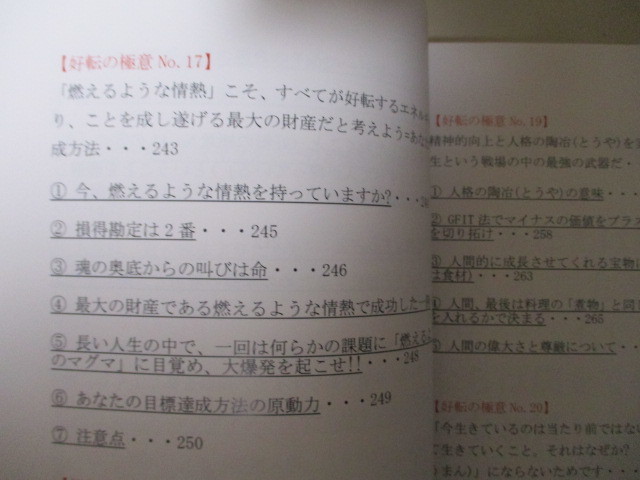 【好転の極意 No. 17】
「燃えるような情熱」こそ、すべてが好転するエネル
り、ことを成し遂げる最大の財産だと考えよう=あな
成方法・・・243
① 今、燃えるような情熱を持っていますか?・・・
② 損得勘定は２番・・・245
③ 魂の奥底からの叫びは命・・・246
④ 最大の財産である燃えるような情熱で成功した
⑤ 長い人生の中で、一回は何らかの課題に「燃える
のマグマ」に目覚め、大爆発を起こせ!!・・・248
⑥ あなたの目標達成方法の原動力・・・249
⑦ 注意点・・・250
【好転の極意 No. 19】
精神的向上と人格の陶冶(とうや)を
生という戦場の中の最強の武器だ・
① 人格の陶冶(とうや)の意味・・
② GFIT 法でマイナスの価値をプラス
を切り拓け・・・258
③ 人間的に成長させてくれる宝物
は食材)・・・263
④ 人間、最後は料理の「煮物」と同
と入れるかで決まる・・・265
⑤ 人間の偉大さと尊厳について・・
【好転の極意 No. 20】
「今生きているのは当たり前ではない
で生きていくこと、それはなぜか?
うまん)」にならないためです・・・